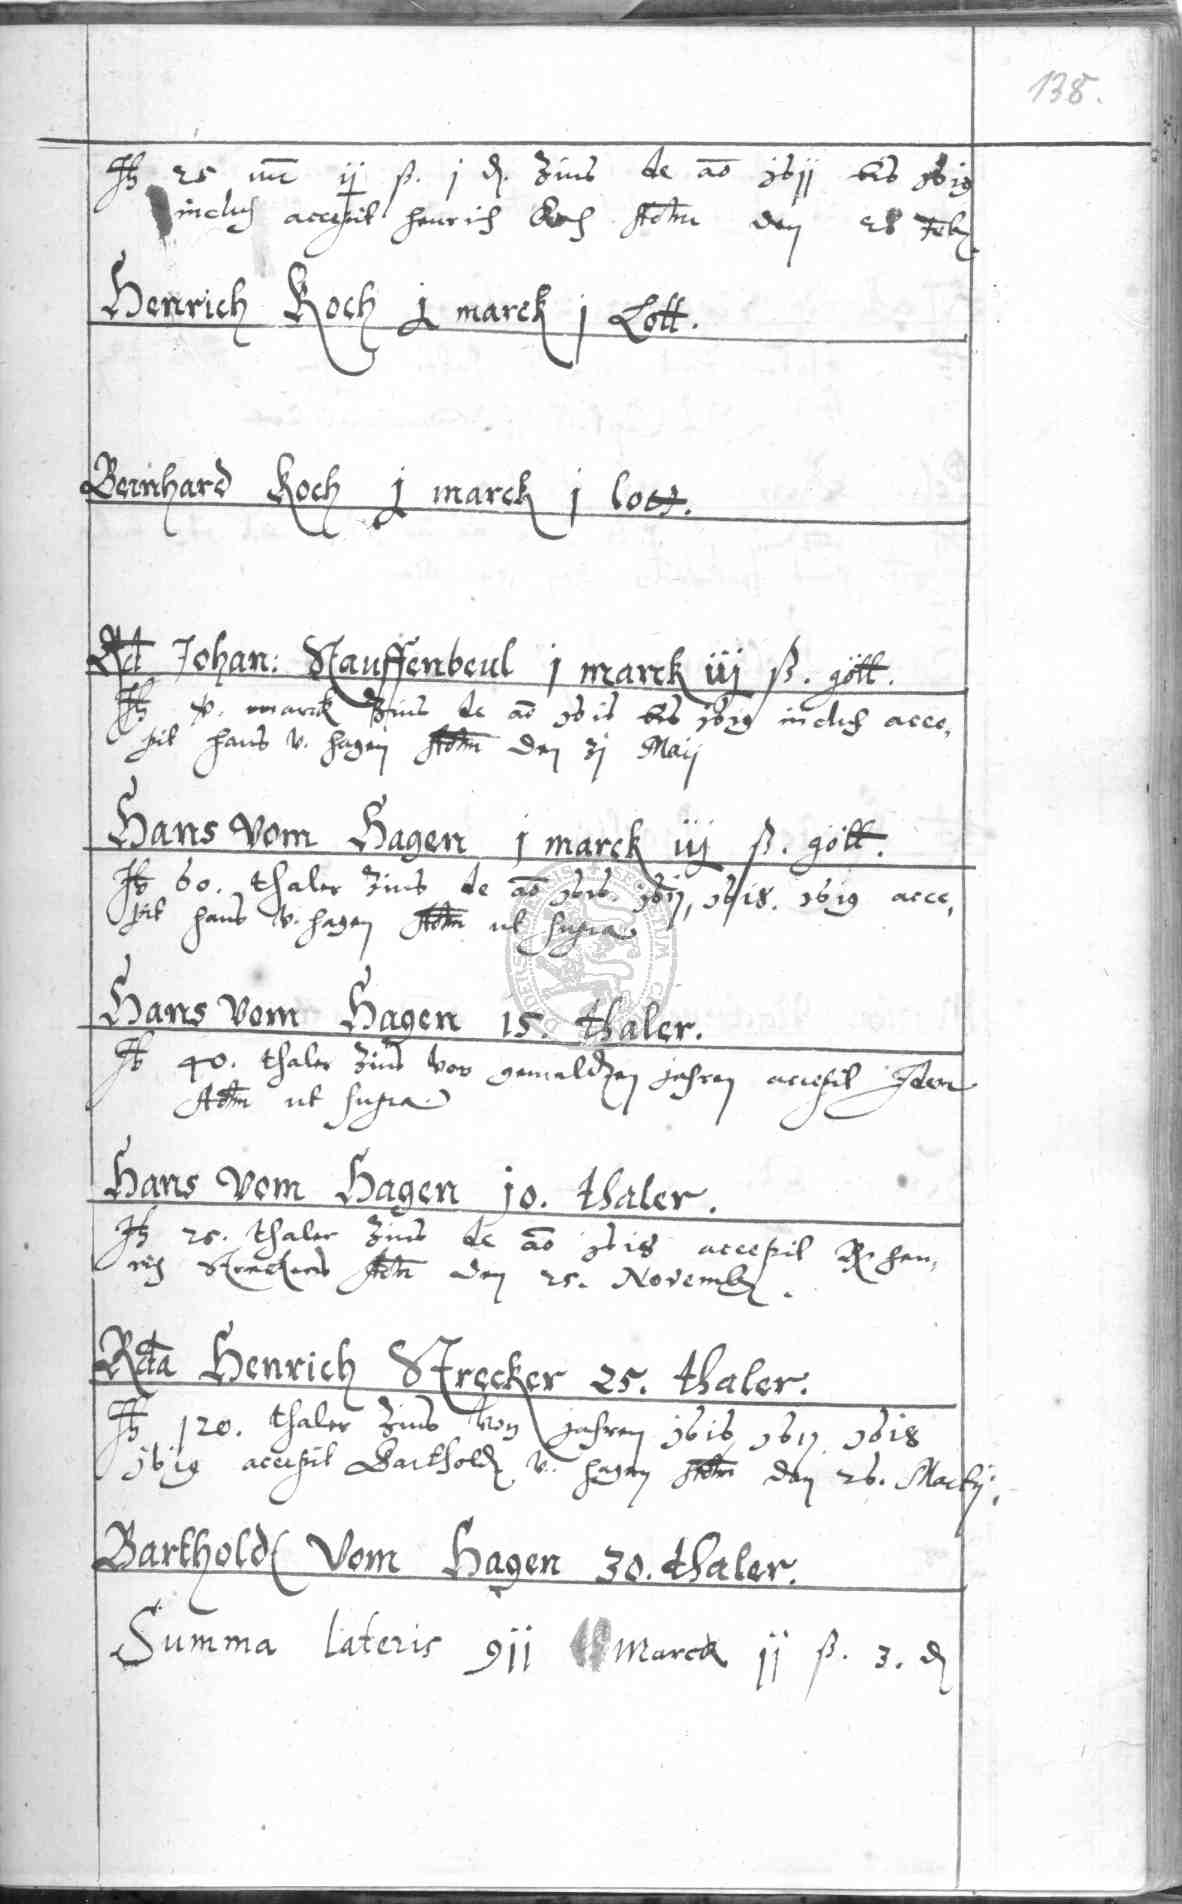 138.
It 25 mr ij ß. j d. Zins de ao 1611 bis 1619
inclus accepit Henrich Koch Actum den 28 Feb
Henrich Koch j marck j Lott.
Bernhard Koch j marck j lott.
Johan: Stauffenbeul j marck iij ß. gött.
It v. marck Zins de ao 1616 bis 1619 inclus acce,
pit Hans v. Hagen Actum den 31 Maij
Hans vom Hagen j marck iij ß. gött.
It 60. thaler Zins de ao 1616. 1617, 1618. 1619 acce,
pit Hans v. Hagen Actum ut supra
Hans vom Hagen 15. thaler.
It 40. thaler Zins vor gemeldten jahren accepit Idem
Actum ut supra
Hans vom Hagen 10. thaler.
It 25. thaler Zins de ao 1618 accepit Hen,
rich Streckers Actum den 25. Novemb.
Rda Henrich Strecker 25. thaler.
It 120. thaler Zins von jahren 1616, 1617, 1618
1619 accepit Barthold v. Hagen Actum den 26. Martij.
Barthold vom Hagen 30. thaler.
Summa lateris 911 Marck jj ß. 3. d